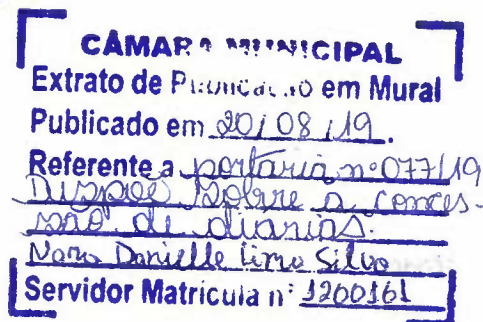 CÂMARA MUNICIPAL
Extrato de Publicação em Mural
Publicado em 20/08/19.
Referente a portaria nº 077/19
Dispoe sobre a conces-
são de diarias.
Nara Danielle Lima Silva
Servidor Matrícula nº 1200161